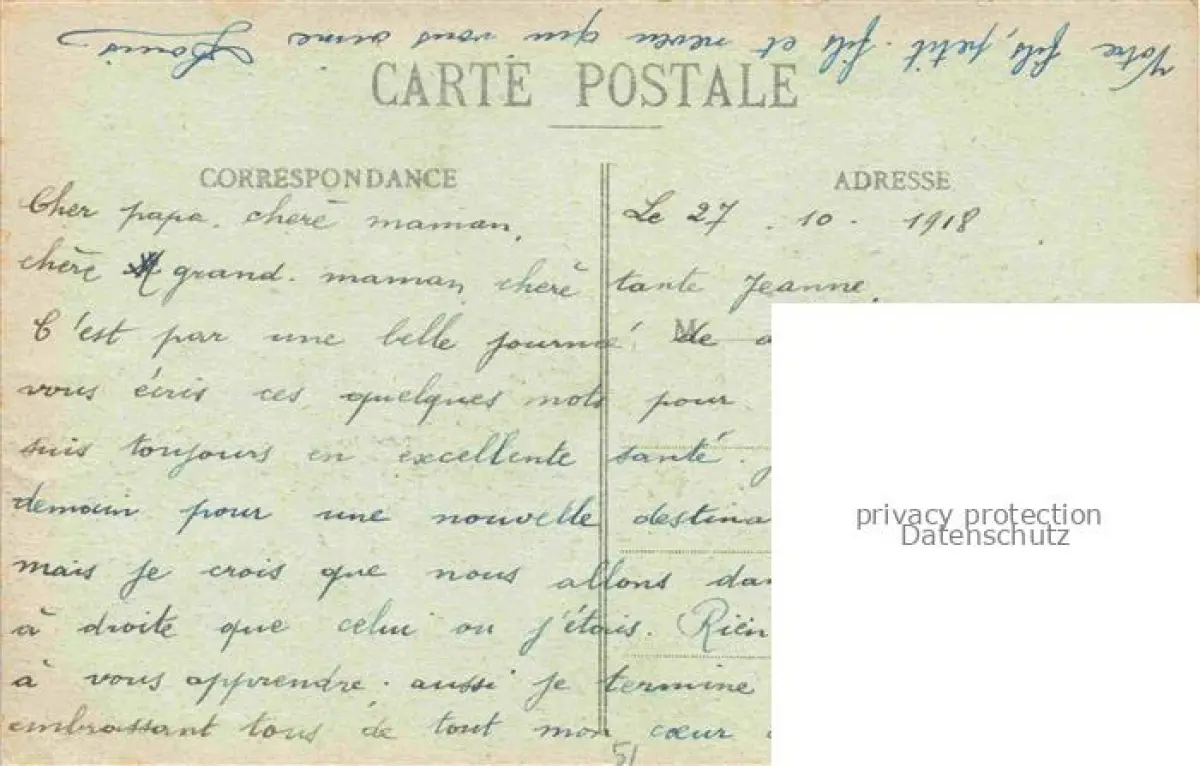 Votre fils, petit-fils et neveu qui vous aime Louis
CARTE POSTALE
CORRESPONDANCE
ADRESSE
Cher papa. cherè maman,
Le 27. 10. 1918.
chère grand-maman, cherè tante Jeanne,
C'est par une belle journeé. de
vous écris ces quelques mots pour
suis toujours en excellente santé.
demain pour une nouvelle destina
mais je crois que nous allons da
à droite que celui ou j'étais. Rien
à vous apprendre. aussi je termine
embrassant tous de tout mon cœur
51
privacy protection
Datenschutz